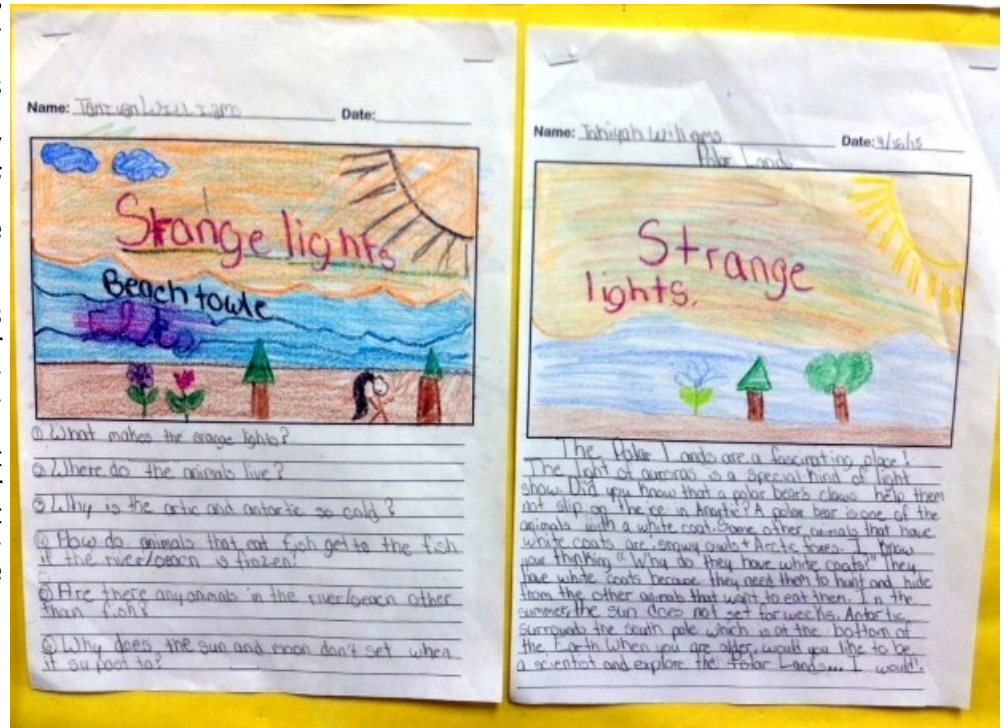 Name: Williams
Date:
Strange lights
Beach towle
① What makes the orange lights?
② Where do the animals live?
③ Why is the artic and antartic so cold?
④ How do animals that eat fish get to the fish
if the river/ocean is frozen?
⑤ Are there any animals in the river/ocean other
than fish?
⑥ Why does the sun and moon don't set when
it su post to?
Name: Janiyah Williams
Date: 9/16/15
Polar Lands
Strange
lights.
The Polar Lands are a fascinating place!
The light of auroras is a special kind of light
show. Did you know that a polar bear's claws help them
not slip on the ice in? A polar bear is one of the
animals with a white coat. Some other animals that have
white coats are snowy owls + Arctic foxes. I know
your thinking "Why do they have white coats?" They
have white coats because they need them to hunt and hide
from the other animals that want to eat them. In the
summer, the sun does not set for weeks. Antartic
surrounds the south pole which is at the bottom of
the Earth. When you are older, would you like to be
a scientist and explore the Polar Lands... I would!